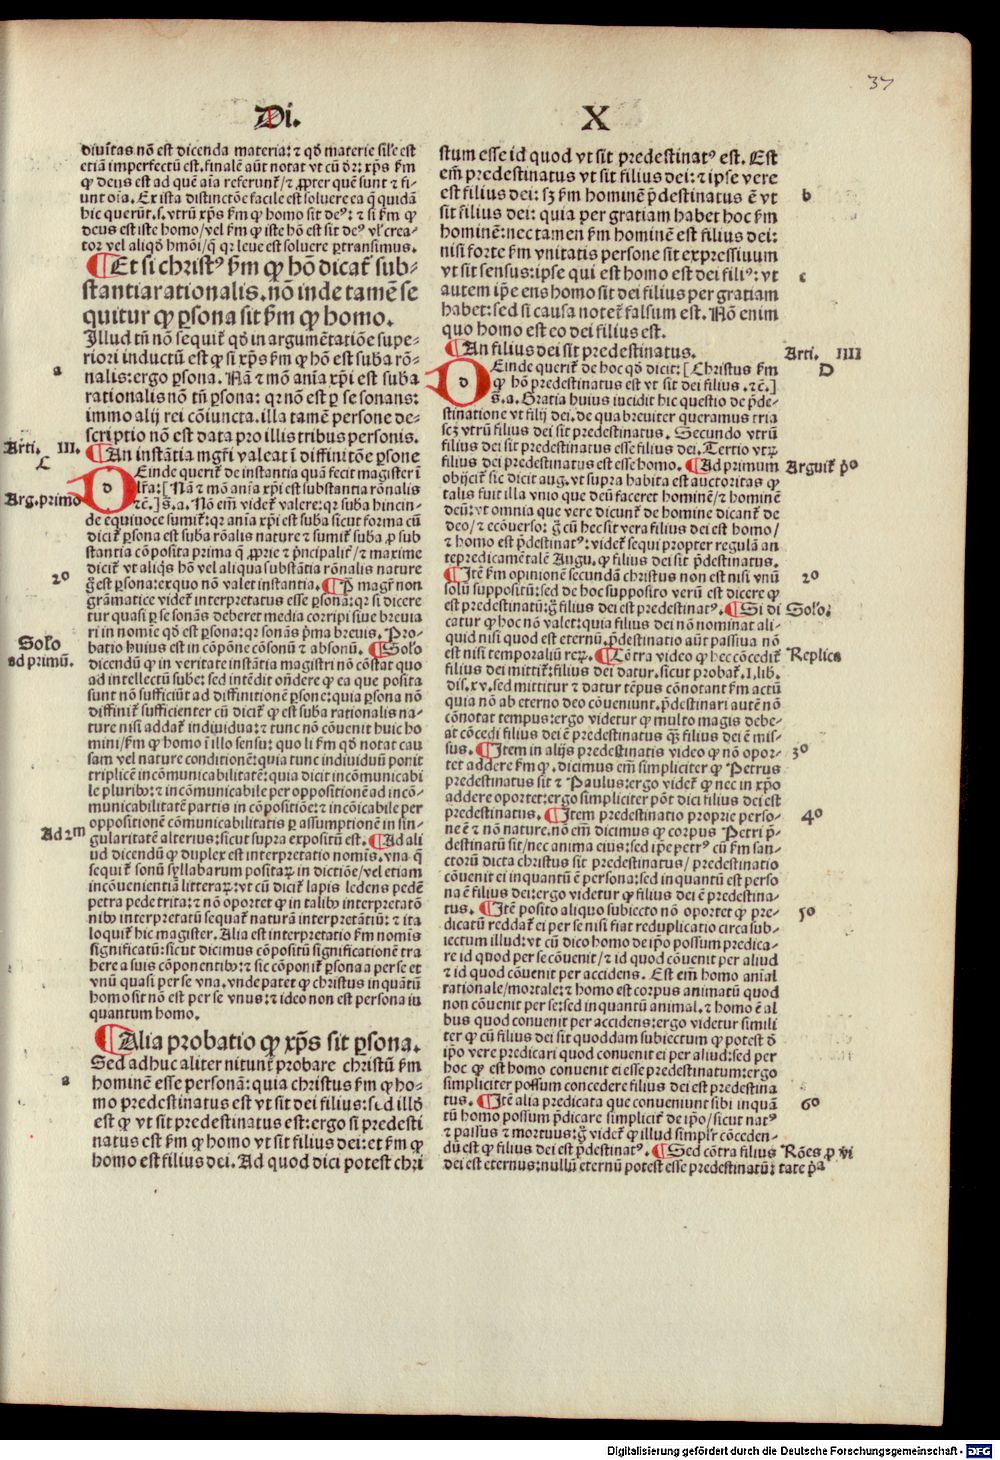 37
Di.
X
diuītas nō est dicenda materia: ⁊ qđ materie sil'e est
etiā imperfectū est. finalē aūt notat vt cū dr̄: xp̄s ẜm
ꝙ deus est ad quē aīa referunt᷑/⁊ ꝓpter quē sunt ⁊ fi-
unt oīa. Ex ista distinctōe facile est soluere ea q̄ quidā
hic querūt. s. vtrū xp̄s ẜm ꝙ homo sit deꝰ: ⁊ si ẜm ꝙ
deus est iste homo/vel ẜm ꝙ iste hō est sit deꝰ vl' crea-
tor vel aliqđ hmōi/q̄ qr leue est soluere ꝑtransimus.
¶Et si christꝰ ẜm ꝙ hō dicat᷑ sub-
stantia rationalis. nō inde tamē se
quitur ꝙ ꝑsona sit ẜm ꝙ homo.
Illud tn̄ nō sequit᷑ qđ in argumētatiōe supe-
riori inductū est ꝙ si xp̄s ẜm ꝙ hō est suba rō-
a
nalis: ergo ꝑsona. Nā ⁊ mō anīa xp̄i est suba
rationalis nō tn̄ ꝑsona: qr nō est ꝑ se sonans:
immo alij rei cōiuncta. illa tamē persone de-
scriptio nō est data pro illis tribus personis.
Arti. III.
¶An instātia mgr̄i valeat ī diffinitōe ꝑsone
C
Deinde querit᷑ de instantia quā fecit magister ī
Arg. primo
lr̄a: [Nā ⁊ mō anīa xp̄i est substantia rōnalis
⁊c̄.] s. a. Nō em̄ videt᷑ valere: qr suba hincin-
de equiuoce sumit᷑: qr anīa xp̄i est suba sicut forma cū
dicit᷑ ꝑsona est suba rōalis nature ⁊ sumit᷑ suba ꝓ sub
stantia cōposita prima q̄ ꝓprie ⁊ p̄ncipalit᷑/⁊ maxime
dicit᷑ vt aliqs hō vel aliqua substātia rōnalis nature
2º
g̊ est ꝑsona: ex quo nō valet instantia. ¶P̄ magr̄ non
grāmatice videt᷑ interpretatus esse ꝑsonā: qr si dicere
tur quasi ꝑ se sonās deberet media corripi siue breuia
ri in nomīe qđ est ꝑsona: qr sonās p̄ma breuis. Pro-
Solo
batio huius est in cōpōne cōsonū ⁊ absonū. ¶Solo
ad primū.
dicendū ꝙ in veritate instātia magistri nō cōstat quo
ad intellectū sube: sed intēdit ondere ꝙ ea que posita
sunt nō sufficiūt ad diffinitionē ꝑsone: quia ꝑsona nō
diffinit᷑ sufficienter cū dicit᷑ ꝙ est suba rationalis na-
ture nisi addat᷑ indiuidua: ⁊ tunc nō cōuenit huic ho
mini/ẜm ꝙ homo ī illo sensu: quo li ẜm qđ notat cau
sam vel nature conditionē: quia tunc indiuiduū ponit
triplicē incōmunicabilitatē: quia dicit incōmunicabi
le pluribꝰ: ⁊ incōmunicabile per oppositionē ad incō-
municabilitatē partis in cōpositiōe: ⁊ incōicabile per
oppositionē cōmunicabilitatis ꝑ assumptionē in sin-
Ad 2m
gularitatē alterius: sicut supra expositū est. ¶Ad ali
ud dicendū ꝙ duplex est interpretatio nomīs. vna q̄
sequit᷑ sonū syllabarum positaꝝ in dictiōe/vel etiam
incōuenientiā litteraꝝ: vt cū dicit᷑ lapis ledens pedē
petra pede trita: ⁊ nō oportet ꝙ in talibꝰ interpretatō
nibꝰ interpretatū sequat᷑ naturā interpretātiū: ⁊ ita
loquit᷑ hic magister. Alia est interpretatio ẜm nomīs
significatū: sicut dicimus cōpositū significationē tra
here a suis cōponentibꝰ: ⁊ sic cōponit᷑ ꝑsona a per se et
vnū quasi per se vna. vnde patet ꝙ christus inquātū
homo sit nō est per se vnus: ⁊ ideo non est persona in
quantum homo.
¶Alia probatio ꝙ xp̄s sit ꝑsona.
Sed adhuc aliter nitunt᷑ probare christū ẜm
a
hominē esse personā: quia christus ẜm ꝙ ho-
mo predestinatus est vt sit dei filius: sed illđ
est ꝙ vt sit predestinatus est: ergo si predesti
natus est ẜm ꝙ homo vt sit filius dei: et ẜm ꝙ
homo est filius dei. Ad quod dici potest chri
stum esse id quod vt sit predestinatꝰ est. Est
em̄ predestinatus vt sit filius dei: ⁊ ipse vere
b
est filius dei: sꝫ ẜm hominē p̄destinatus ē vt
sit filius dei: quia per gratiam habet hoc ẜm
hominē: nec tamen ẜm hominē est filius dei:
nisi forte ẜm vnitatis persone sit expressiuum
c
vt sit sensus: ipse qui est homo est dei filiꝰ: vt
autem ip̄e ens homo sit dei filius per gratiam
habet: sed si causa notet᷑ falsum est. Nō enim
quo homo est eo dei filius est.
¶An filius dei sit predestinatus.
Arti. IIII
D
Deinde querit᷑ de hoc qđ dicit: [Christus ẜm
ꝙ hō predestinatus est vt sit dei filius. ⁊c̄.]
s. a. Gratia huius incidit hic questio de p̄de-
stinatione vt filij dei. de qua breuiter queramus tria
scꝫ vtrū filius dei sit predestinatus. Secundo vtrū
filius dei sit predestinatus esse filius dei. Tertio vtꝝ
filius dei predestinatus est esse homo. ¶Ad primum
Arguit᷑ p̄º
obijcit᷑ sic dicit aug. vt supra habita est auctoritas ꝙ
talis fuit illa vnio que deū faceret hominē/⁊ hominē
deū: vt omnia que vere dicunt᷑ de homine dicant᷑ de
deo/⁊ ecōuerso: g̊ cū hec sit vera filius dei est homo/
⁊ homo est p̄destinatꝰ: videt᷑ sequi propter regulā an
tepredicamētalē Augu. ꝙ filius dei sit p̄destinatus.
2º
¶Itē ẜm opinionē secundā christus non est nisi vnū
solū suppositū: sed de hoc supposito verū est dicere ꝙ
Solo.
est predestinatū: g̊ filius dei est predestinatꝰ. ¶Si di
catur ꝙ hoc nō valet: quia filius dei nō nominat ali-
quid nisi quod est eternū. p̄destinatio aūt passiua nō
Replica
est nisi temporaliū reꝝ. ¶Cōtra video ꝙ hec cōcedit᷑
filius dei mittit᷑: filius dei datur. sicut probat᷑. I. lib.
dis. xv. sed mittitur ⁊ datur tēpus cōnotant ẜm actū
quia nō ab eterno deo cōueniunt. p̄destinari autē nō
cōnotat tempus: ergo videtur ꝙ multo magis debe-
at cōcedi filius dei ē predestinatus qꝫ filius dei ē mis-
3º
sus. ¶Item in alijs predestinatis video ꝙ nō opor-
tet addere ẜm ꝙ. dicimus em̄ simpliciter ꝙ Petrus
predestinatus sit ⁊ Paulus: ergo videt᷑ ꝙ nec in xp̄o
addere oportet: ergo simpliciter pōt dici filius dei est
4º
predestinatus. ¶Item predestinatio proprie perso-
ne ē ⁊ nō nature. nō em̄ dicimus ꝙ corpus Petri p̄-
destinatū sit/nec anima eius: sed ip̄e petrꝰ cū ẜm san-
ctorū dicta christus sit predestinatus/predestinatio
cōuenit ei inquantū ē persona: sed inquantū est perso
na ē filius dei: ergo videtur ꝙ filius dei ē predestina-
5º
tus. ¶Itē posito aliquo subiecto nō oportet ꝙ pre-
dicatū reddat᷑ ei per se nisi fiat reduplicatio circa sub-
iectum illud: vt cū dico homo de ip̄o possum predica-
re id quod per se cōuenit/⁊ id quod cōuenit per aliud
⁊ id quod cōuenit per accidens. Est em̄ homo anīal
rationale/mortale: ⁊ homo est corpus animatū quod
non cōuenit per se: sed inquantū animal. ⁊ homo ē al
bus quod conuenit per accidens: ergo videtur simili
ter ꝙ cū filius dei sit quoddam subiectum ꝙ potest đ
ip̄o vere predicari quod conuenit ei per aliud: sed per
hoc ꝙ est homo conuenit ei esse predestinatum: ergo
simpliciter possum concedere filius dei est predestina
6º
tus. ¶Itē alia predicata que conueniunt sibi inquā
tū homo possum p̄dicare simplicit᷑ de ip̄o/sicut natꝰ
⁊ passus ⁊ mortuus: g̊ videt᷑ ꝙ illud simplr̄ cōceden-
dū est ꝙ filius dei est p̄destinatꝰ. ¶Sed cōtra filius
Rōes ꝓ vi
dei est eternus: nullū eternū potest esse predestinatū:
tate p̄ª
Digitalisierung gefördert durch die Deutsche Forschungsgemeinschaft - DFG